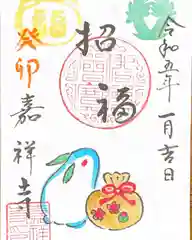 令和五年一月吉日
招福
福
癸卯
嘉祥寺